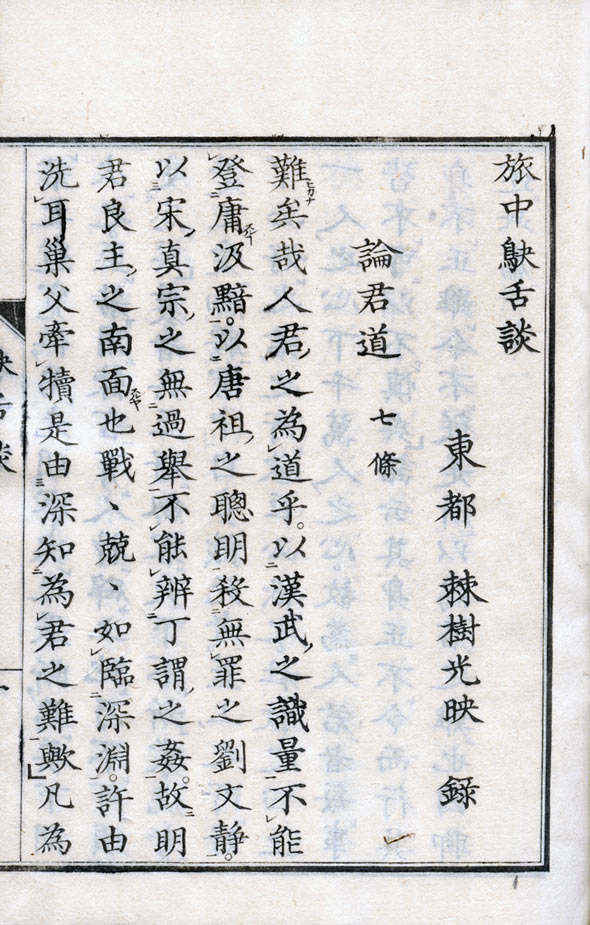 旅中鴃舌談
東都 棘樹光映 録
論君道 七條
難矣哉人君之為道乎。以漢武之識量不能
登庸汲黯。以唐祖之聰明殺無罪之劉文静。
以宋真宗之無過舉不能辨丁謂之姦。故明
君良主之南面也戰、兢、如臨深淵。許由
洗耳巢父牽犢是由深知為君之難歟凡為
舌談